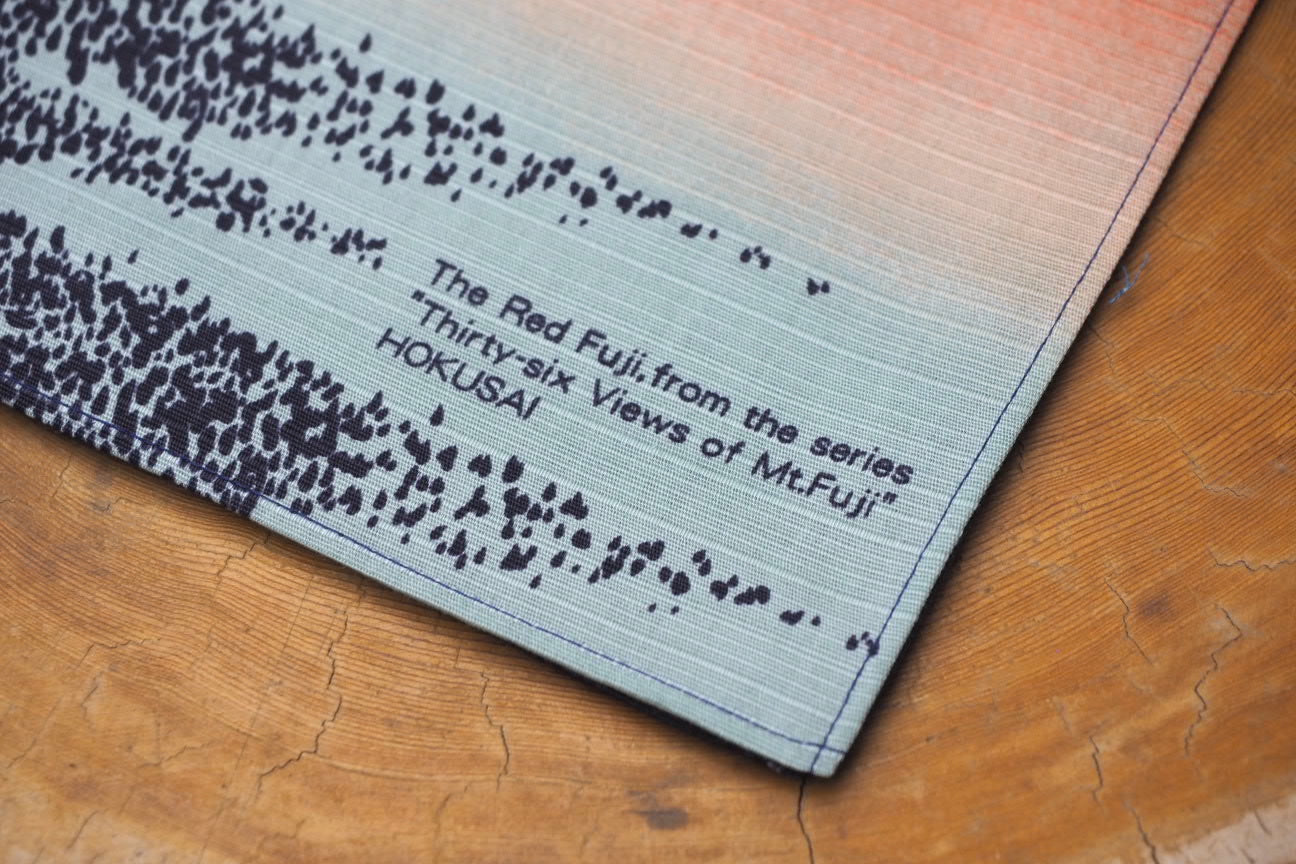 The Red Fuji, from the series
"Thirty-six Views of Mt.Fuji"
HOKUSAI